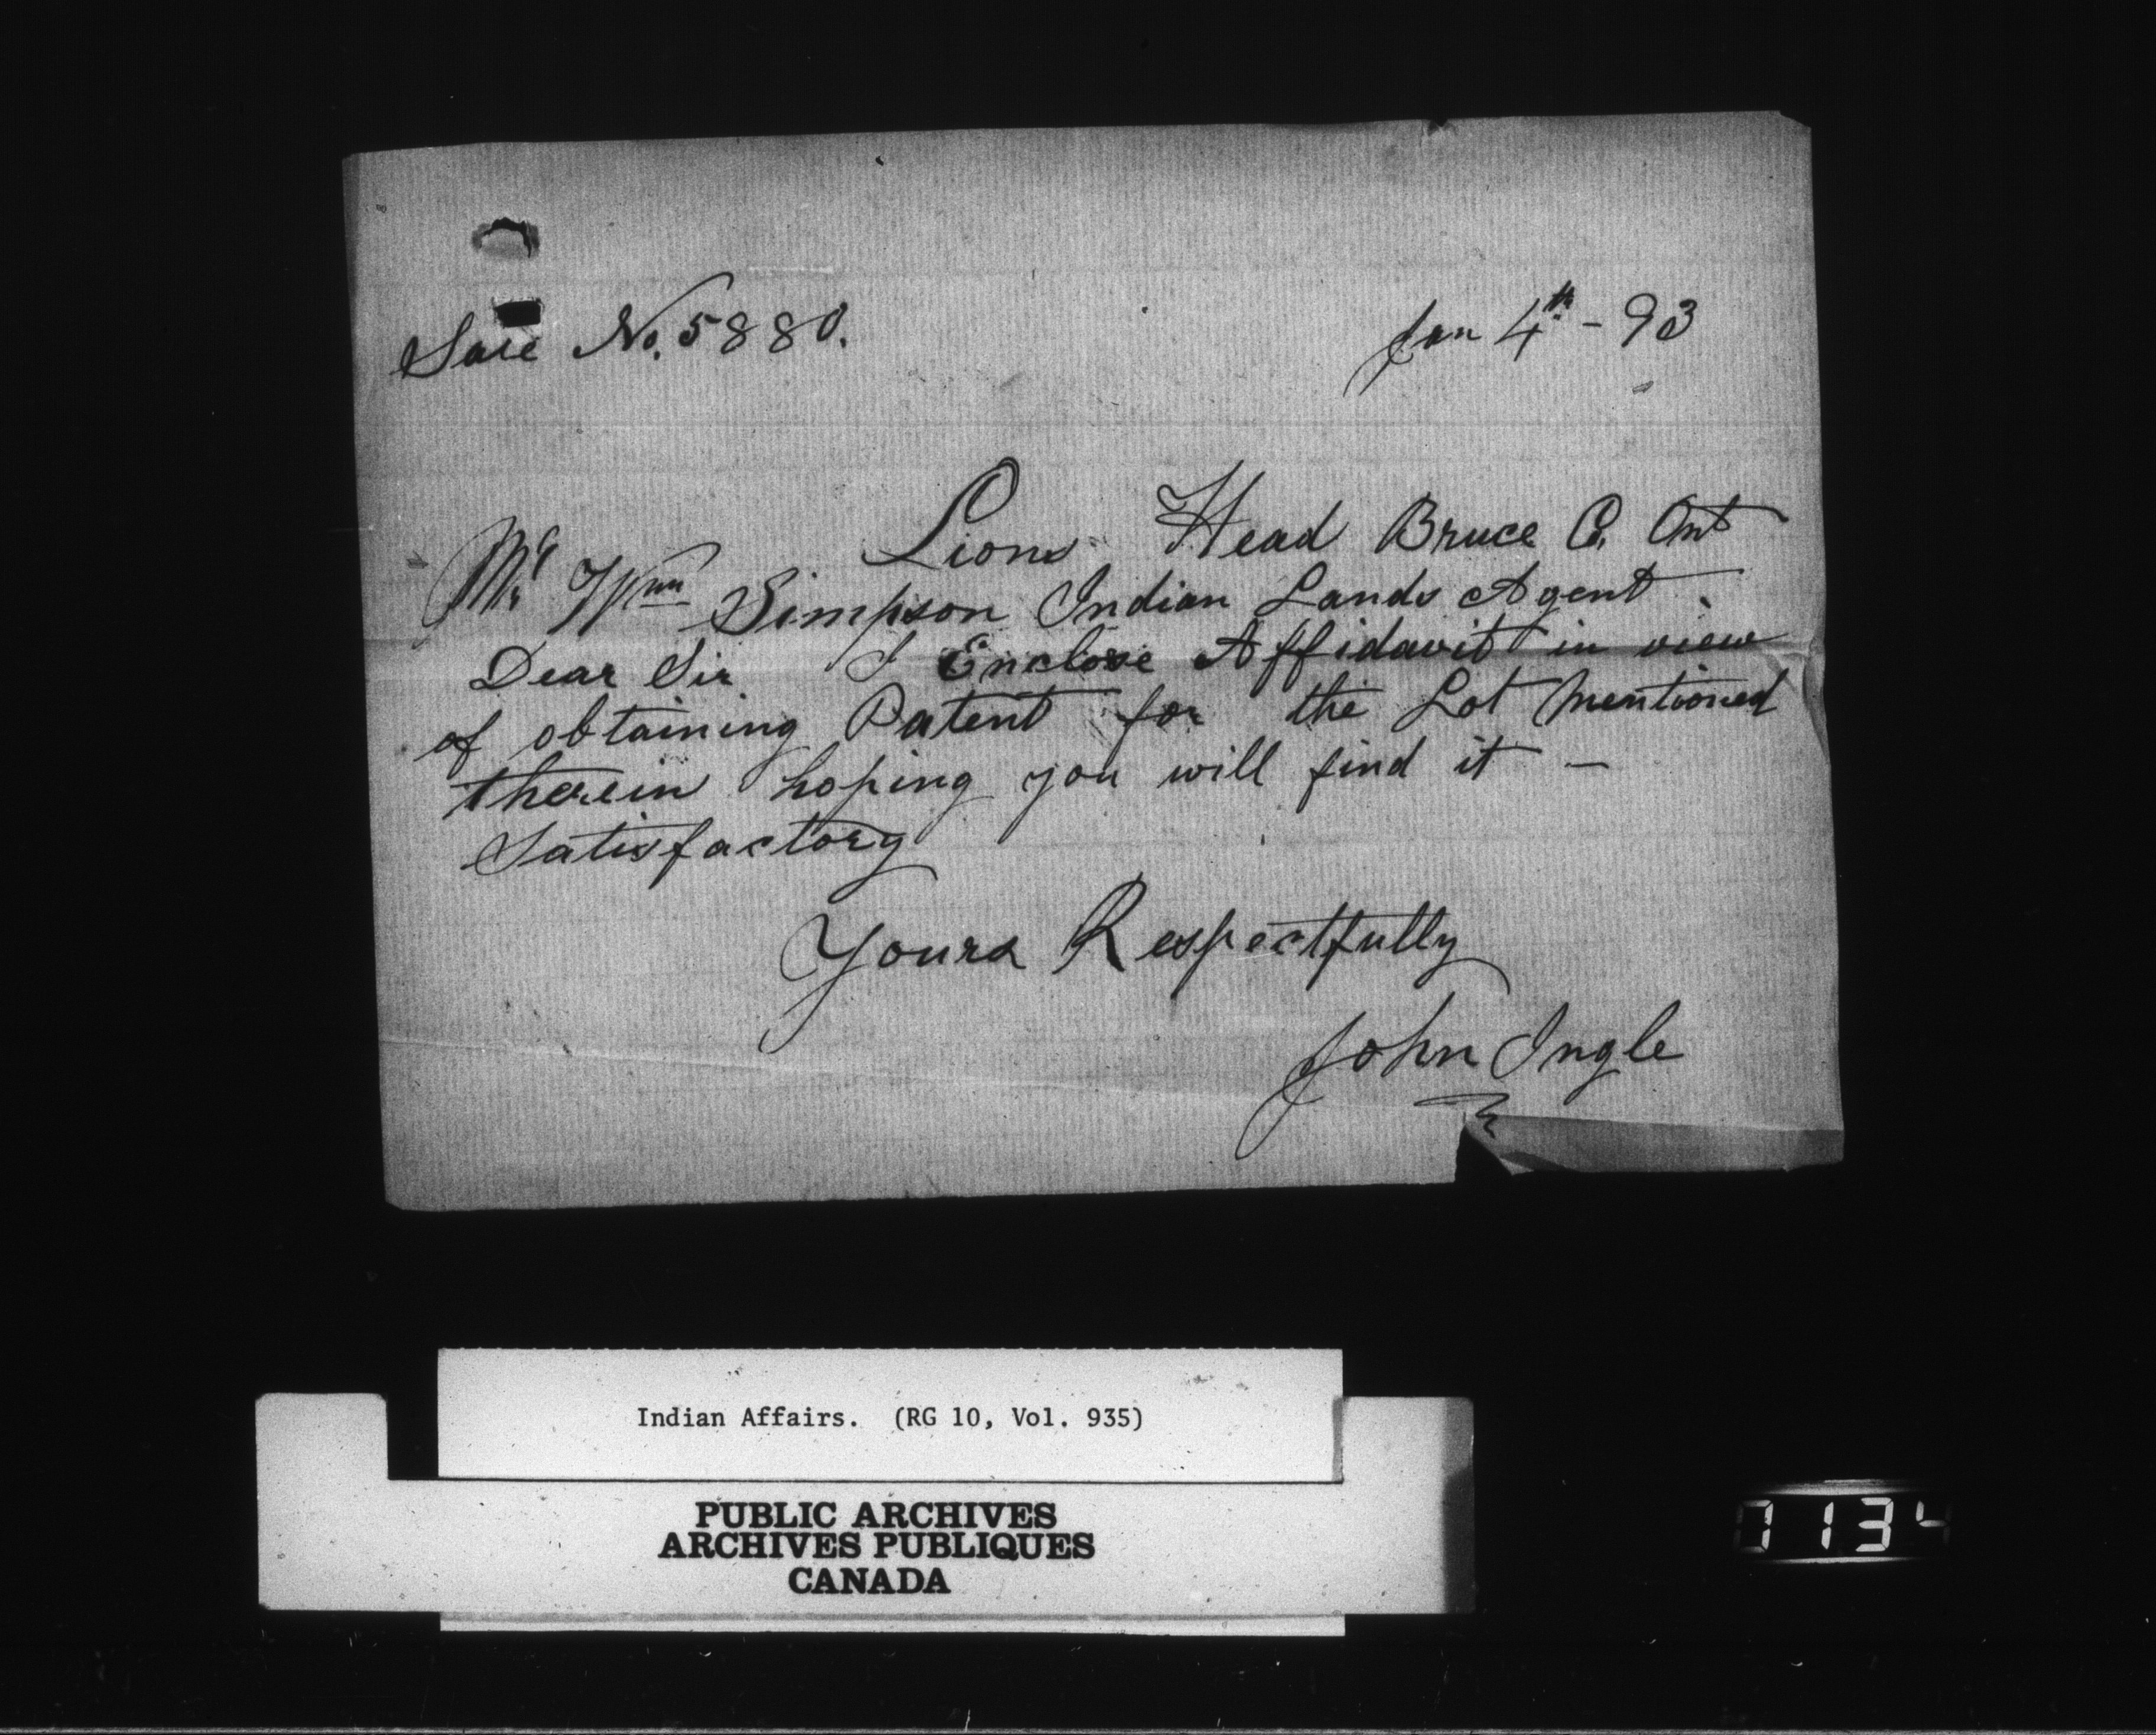 Sale No. 5880.
Jan 4th - 93
Lions Head Bruce Co. Ont
Mr Wm Simpson Indian Lands Agent
Dear Sir I Enclose Affidavit in view
of obtaining Patent for the Lot mentioned
therein hoping you will find it —
Satisfactory
Yours Respectfully
John Ingle
Indian Affairs. (RG 10, Vol. 935)
PUBLIC ARCHIVES
ARCHIVES PUBLIQUES
CANADA
1134